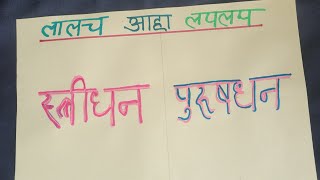 लालच आहा लपलप
स्त्रीधन पुरुषधन